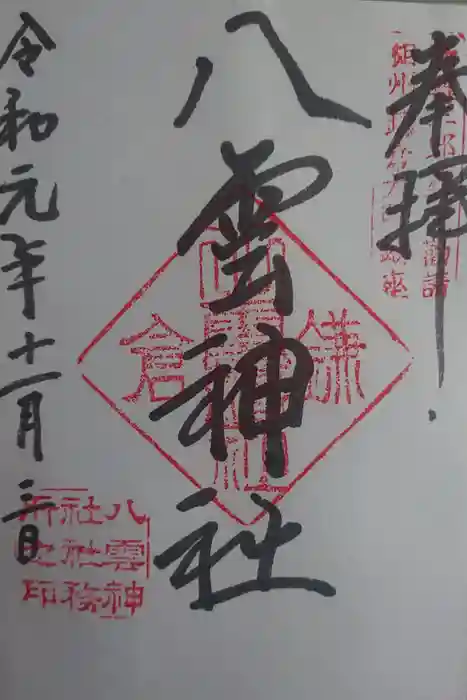 奉拝
勧請
八雲神社
鎌倉
令和元年十一月三日
八雲神
社社務
所之印